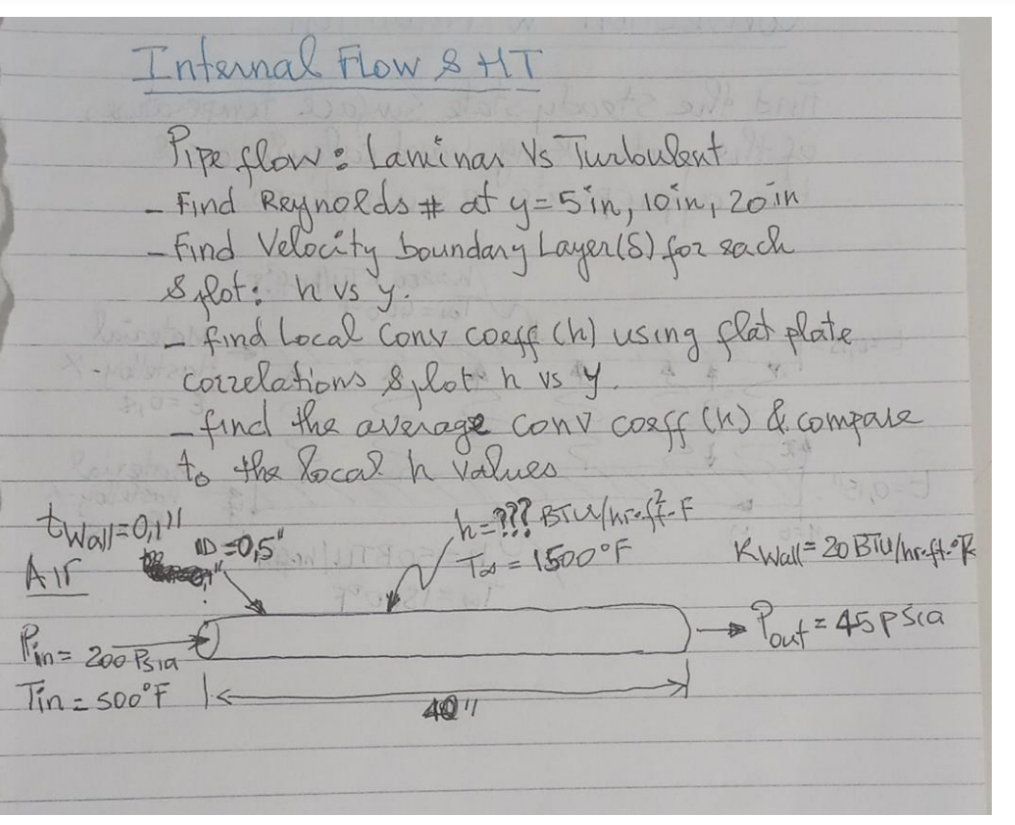 Internal Flow & HT
Pipe flow: Laminar Vs Turbulent
- Find Reynolds # at y=5in, 10in, 20in
- Find Velocity boundary Layer(δ) for each
& plot: h vs y.
- find Local Conv coeff (h) using flat plate
correlations & plot h vs y.
- find the average conv coeff (h) & compare
to the local h values
tWall=0,1"
ID=0,5"
h=??? BTU/hr.ft²-F
T∞ = 1500°F
KWall=20BTU/hr.ft.°R
Air
Pin= 200 Psia
Tin = 500°F
Pout = 45psia
40"